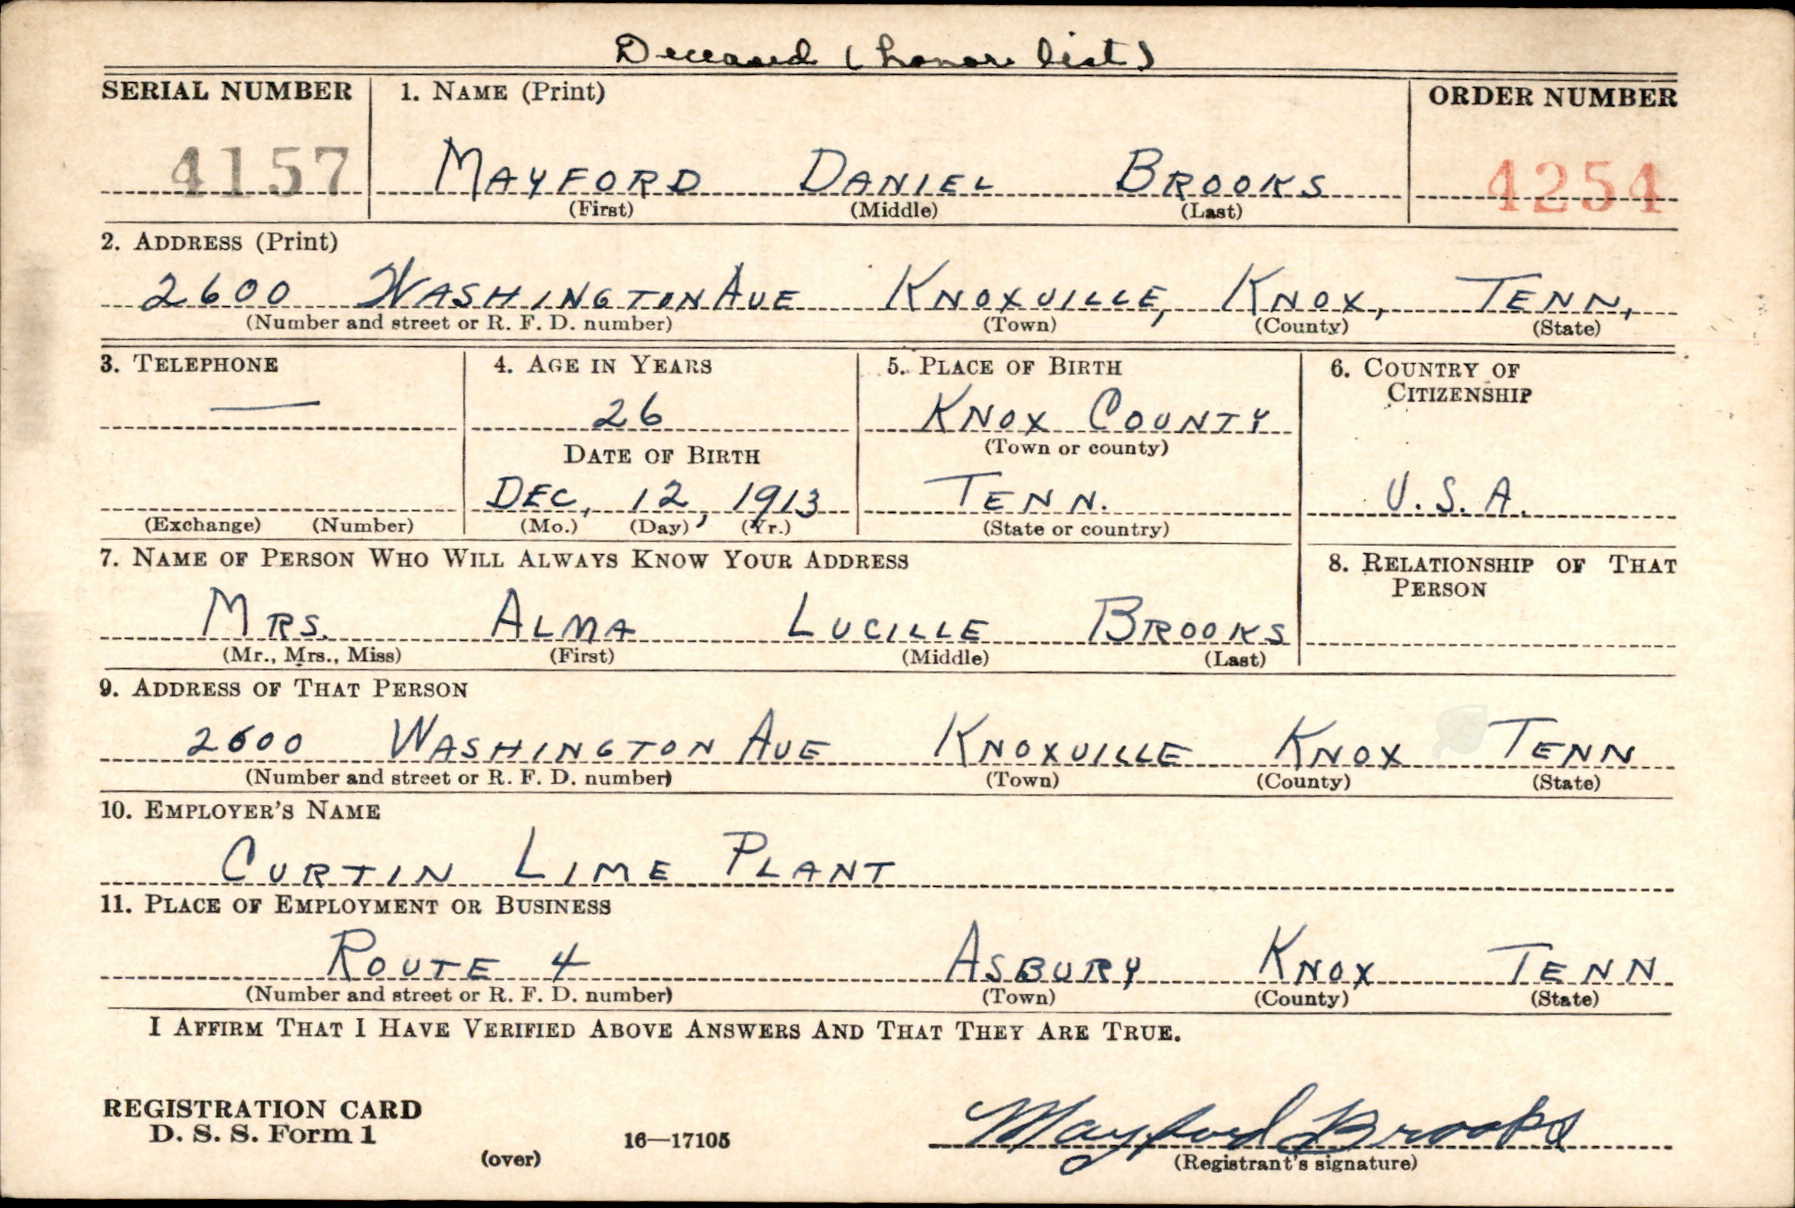 Deceased (honor list)
SERIAL NUMBER 1. NAME (Print) ORDER NUMBER
4157 MAYFORD DANIEL BROOKS 4254
(First) (Middle) (Last)
2. ADDRESS (Print)
2600 WASHINGTON AVE KNOXVILLE, KNOX, TENN,
(Number and street or R. F. D. number) (Town) (County) (State)
3. TELEPHONE 4. AGE IN YEARS 5. PLACE OF BIRTH 6. COUNTRY OF
CITIZENSHIP
— 26 KNOX COUNTY
DATE OF BIRTH (Town or county)
DEC, 12, 1913 TENN. U.S.A.
(Exchange) (Number) (Mo.) (Day) (Yr.) (State or country)
7. NAME OF PERSON WHO WILL ALWAYS KNOW YOUR ADDRESS 8. RELATIONSHIP OF THAT
PERSON
MRS. ALMA LUCILLE BROOKS
(Mr., Mrs., Miss) (First) (Middle) (Last)
9. ADDRESS OF THAT PERSON
2600 WASHINGTON AVE KNOXVILLE KNOX TENN
(Number and street or R. F. D. number) (Town) (County) (State)
10. EMPLOYER'S NAME
CURTIN LIME PLANT
11. PLACE OF EMPLOYMENT OR BUSINESS
ROUTE 4 ASBURY KNOX TENN
(Number and street or R. F. D. number) (Town) (County) (State)
I AFFIRM THAT I HAVE VERIFIED ABOVE ANSWERS AND THAT THEY ARE TRUE.
REGISTRATION CARD
D. S. S. Form 1 16—17105 Mayford Brooks
(over) (Registrant's signature)